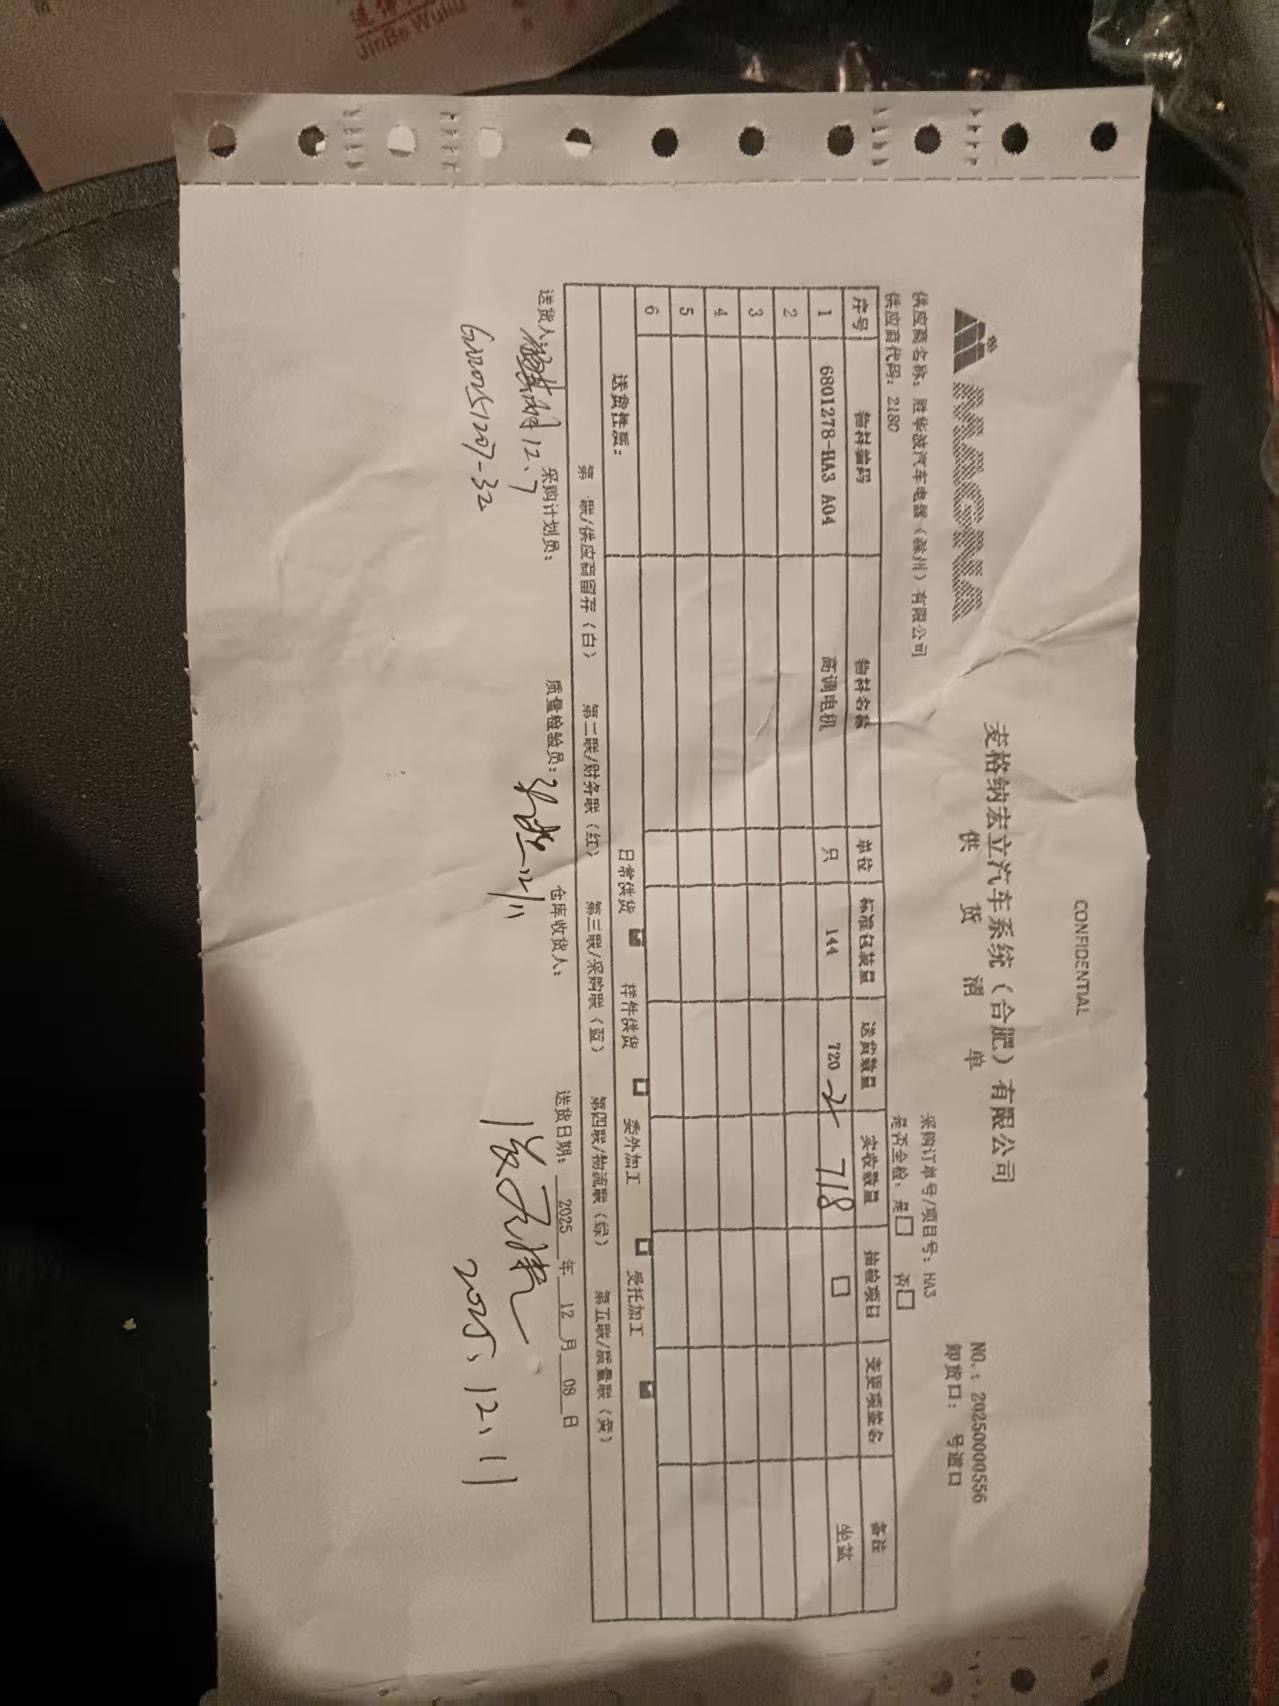 JinBe Wuliu
CONFIDENTIAL
MAGNA
麦格纳宏立汽车系统（合肥）有限公司
供 货 清 单
NO.: 20250000556
卸货口： 号道口
采购订单号/项目号：HA3
供应商名称：胜华波汽车电器（滁州）有限公司
是否全检：是□ 否□
供应商代码：2180
序号 物料编码 物料名称 单位 标准包装量 送货数量 实收数量 抽检项目 变更项签名 备注
1 6801278-HA3 A04 高调电机 只 144 720 718 □ 坐盆
2
3
4
5
6
送货性质： 日常供货 样件供货 □ 委外加工 □ 受托加工
第 联/供应商留存（白） 第二联/财务联（红） 第三联/采购联（蓝） 第四联/物流联（绿） 第五联/质量联（黄）
送货人： 12.7 采购计划员： 质量检验员： 12/11 仓库收货人： 送货日期： 2025 年 12 月 08 日
2025.12.11